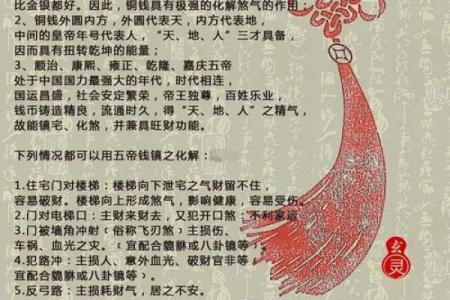 比金银都好。因此，铜钱具有极强的化解煞气的作用；
2、铜钱外圆内方，外圆代表天，内方代表地，
中间的皇帝年号代表人，“天、地、人”三才具备，
因而具有扭转乾坤的能量；
3、顺治、康熙、雍正、乾隆、嘉庆五帝
处于中国国力最强大的年代，时代相连，
国运昌盛，社会安定繁荣，帝王独尊，百姓乐业，
钱币铸造精良，流通时久，得“天、地、人”之精气，
故能镇宅、化煞，并兼具旺财功能。
下列情况都可以用五帝钱镇之化解：
1.住宅门对楼梯：楼梯向下泄宅之气财留不住，
容易破财。楼梯向上形成煞气，影响健康，容易受伤。
2.门对电梯口：主财来财去，又犯开口煞：不利家运
3.门被墙角冲射﹙俗称飞刃煞﹚主损伤、
车祸、血光之灾。﹙宜配合貔貅或八卦镜等﹚。
4.犯路冲：主损人、意外血光、破财官非等
﹙宜配合貔貅或八卦镜等﹚。
5.反弓路：主损耗财气，居之不安。
玄
灵